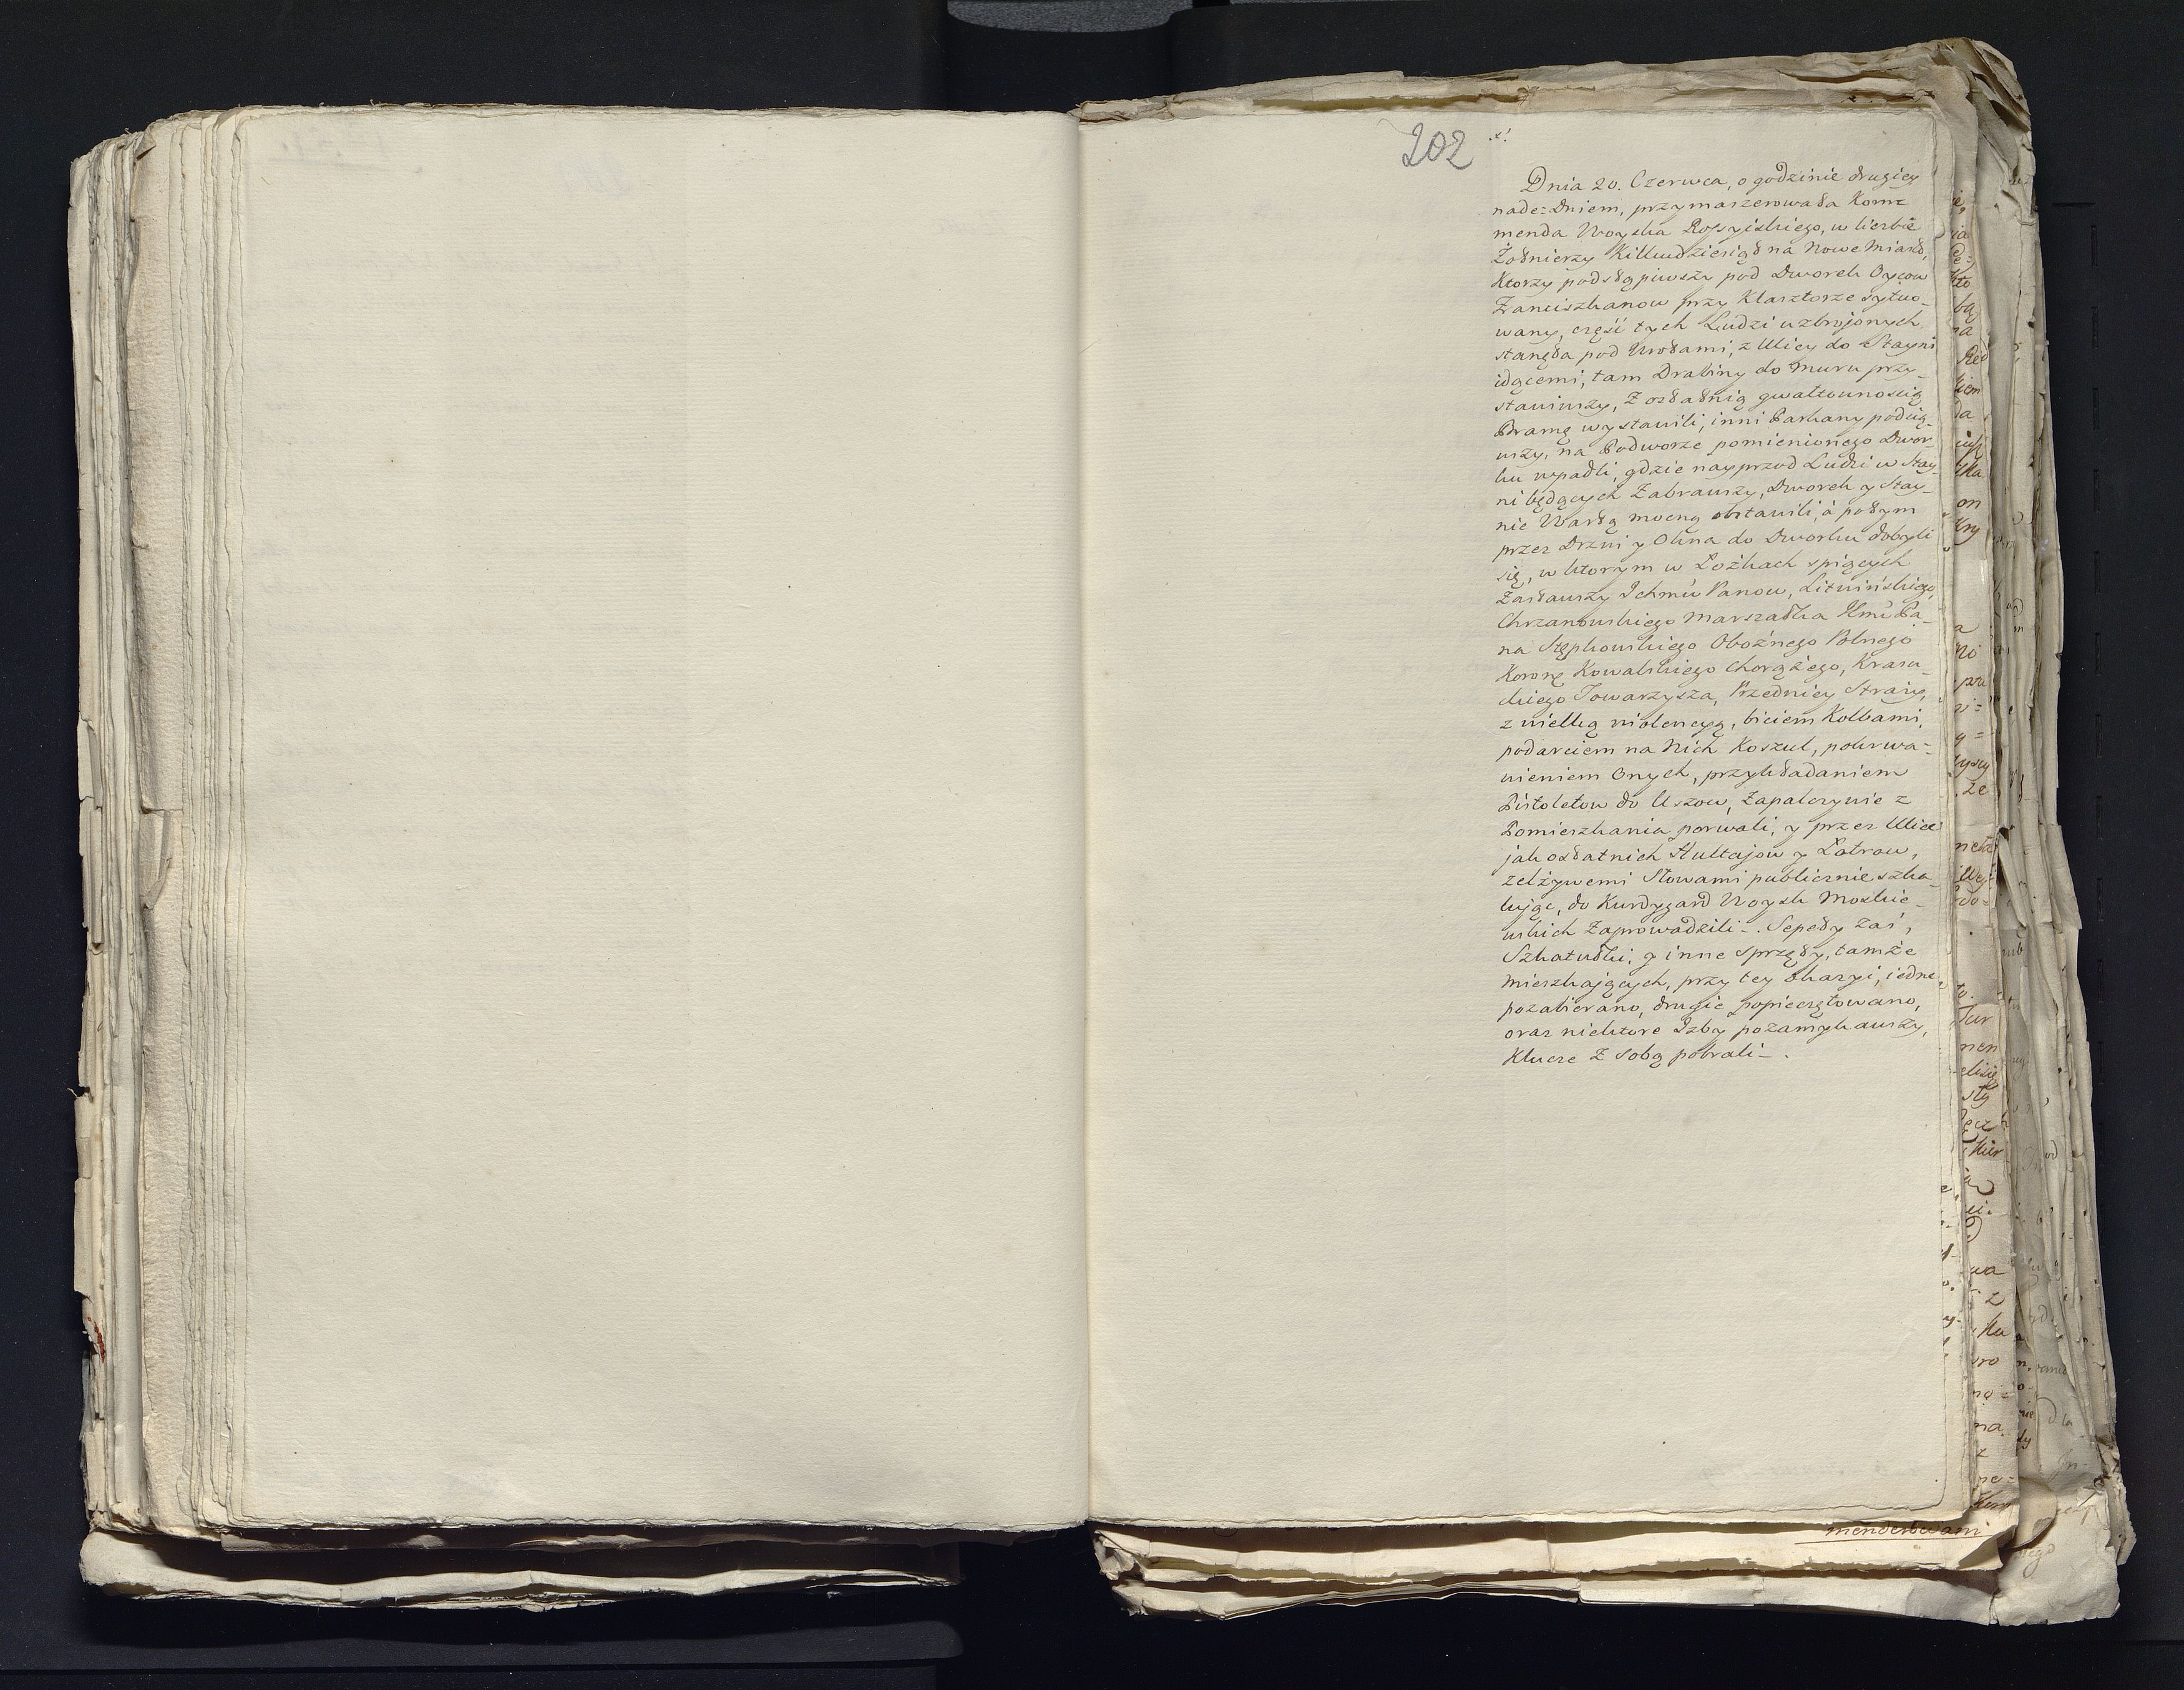 202
Dnia 20. Czerwca, o godzinie drugiey
nade=Dniem, przymaszerowała Kom=
menda Woyska Rossyiskiego, w liczbie
Żołnierzy Killkudziesiąt na Nowe Miasto,
Ktorzy podstąpiwszy pod Dworek Oycow
Franciszkanow przy Klasztorze sytuo-
wany, część tych Ludzi uzbrojonych
stanęła pod Wrotami, z Ulicy do Stayni
idącemi, tam Drabiny do Muru przy-
stawiwszy, Z ostatnią gwałtownością
Bramę wystawili, inni Parkany podcią-
wszy, na Podworze pomienionego Dwor-
ku wpadli, gdzie nayprzod Ludzi w Stay-
ni będących Zabrawszy, Dworek y Stay-
nie Wartą mocną obstawili, á potym
przez Drzwi y Okna do Dworku dobyli
się, w ktorym w Łożkach spiących
Zastawszy Jchmć Panow, Litwińskiego,
Chrzanowskiego Marszałka Jłmć Pa-
na Stępkowskiego Oboźnego Polnego
Koronę Kowalskiego Chorążego, Krasu-
ckiego Towarzysza, Przedniey Straży,
z wielką wiolencyą, biciem Kolbami,
podarciem na Nich Koszul, pokrwa-
wieniem Onych, przykładaniem
Pistoletow do Uszow, Zapalczywie z
Pomieszkania porwali, y przez Ulice
jak ostatnich Hultajow y Łotrow,
zelżywemi Słowami publicznie szka-
lując, do Kurdygard Woysk Moskie-
wskich Zaprowadzili _. Sepety Zaś,
Szkatułki, y inne sprzęty, tamże
mieszkających, przy tey okazyi, iedne
pozabierano, drugie popieczętowano,
oraz niektore Izby pozamykawszy,
Klucze Z sobą pobrali _ .